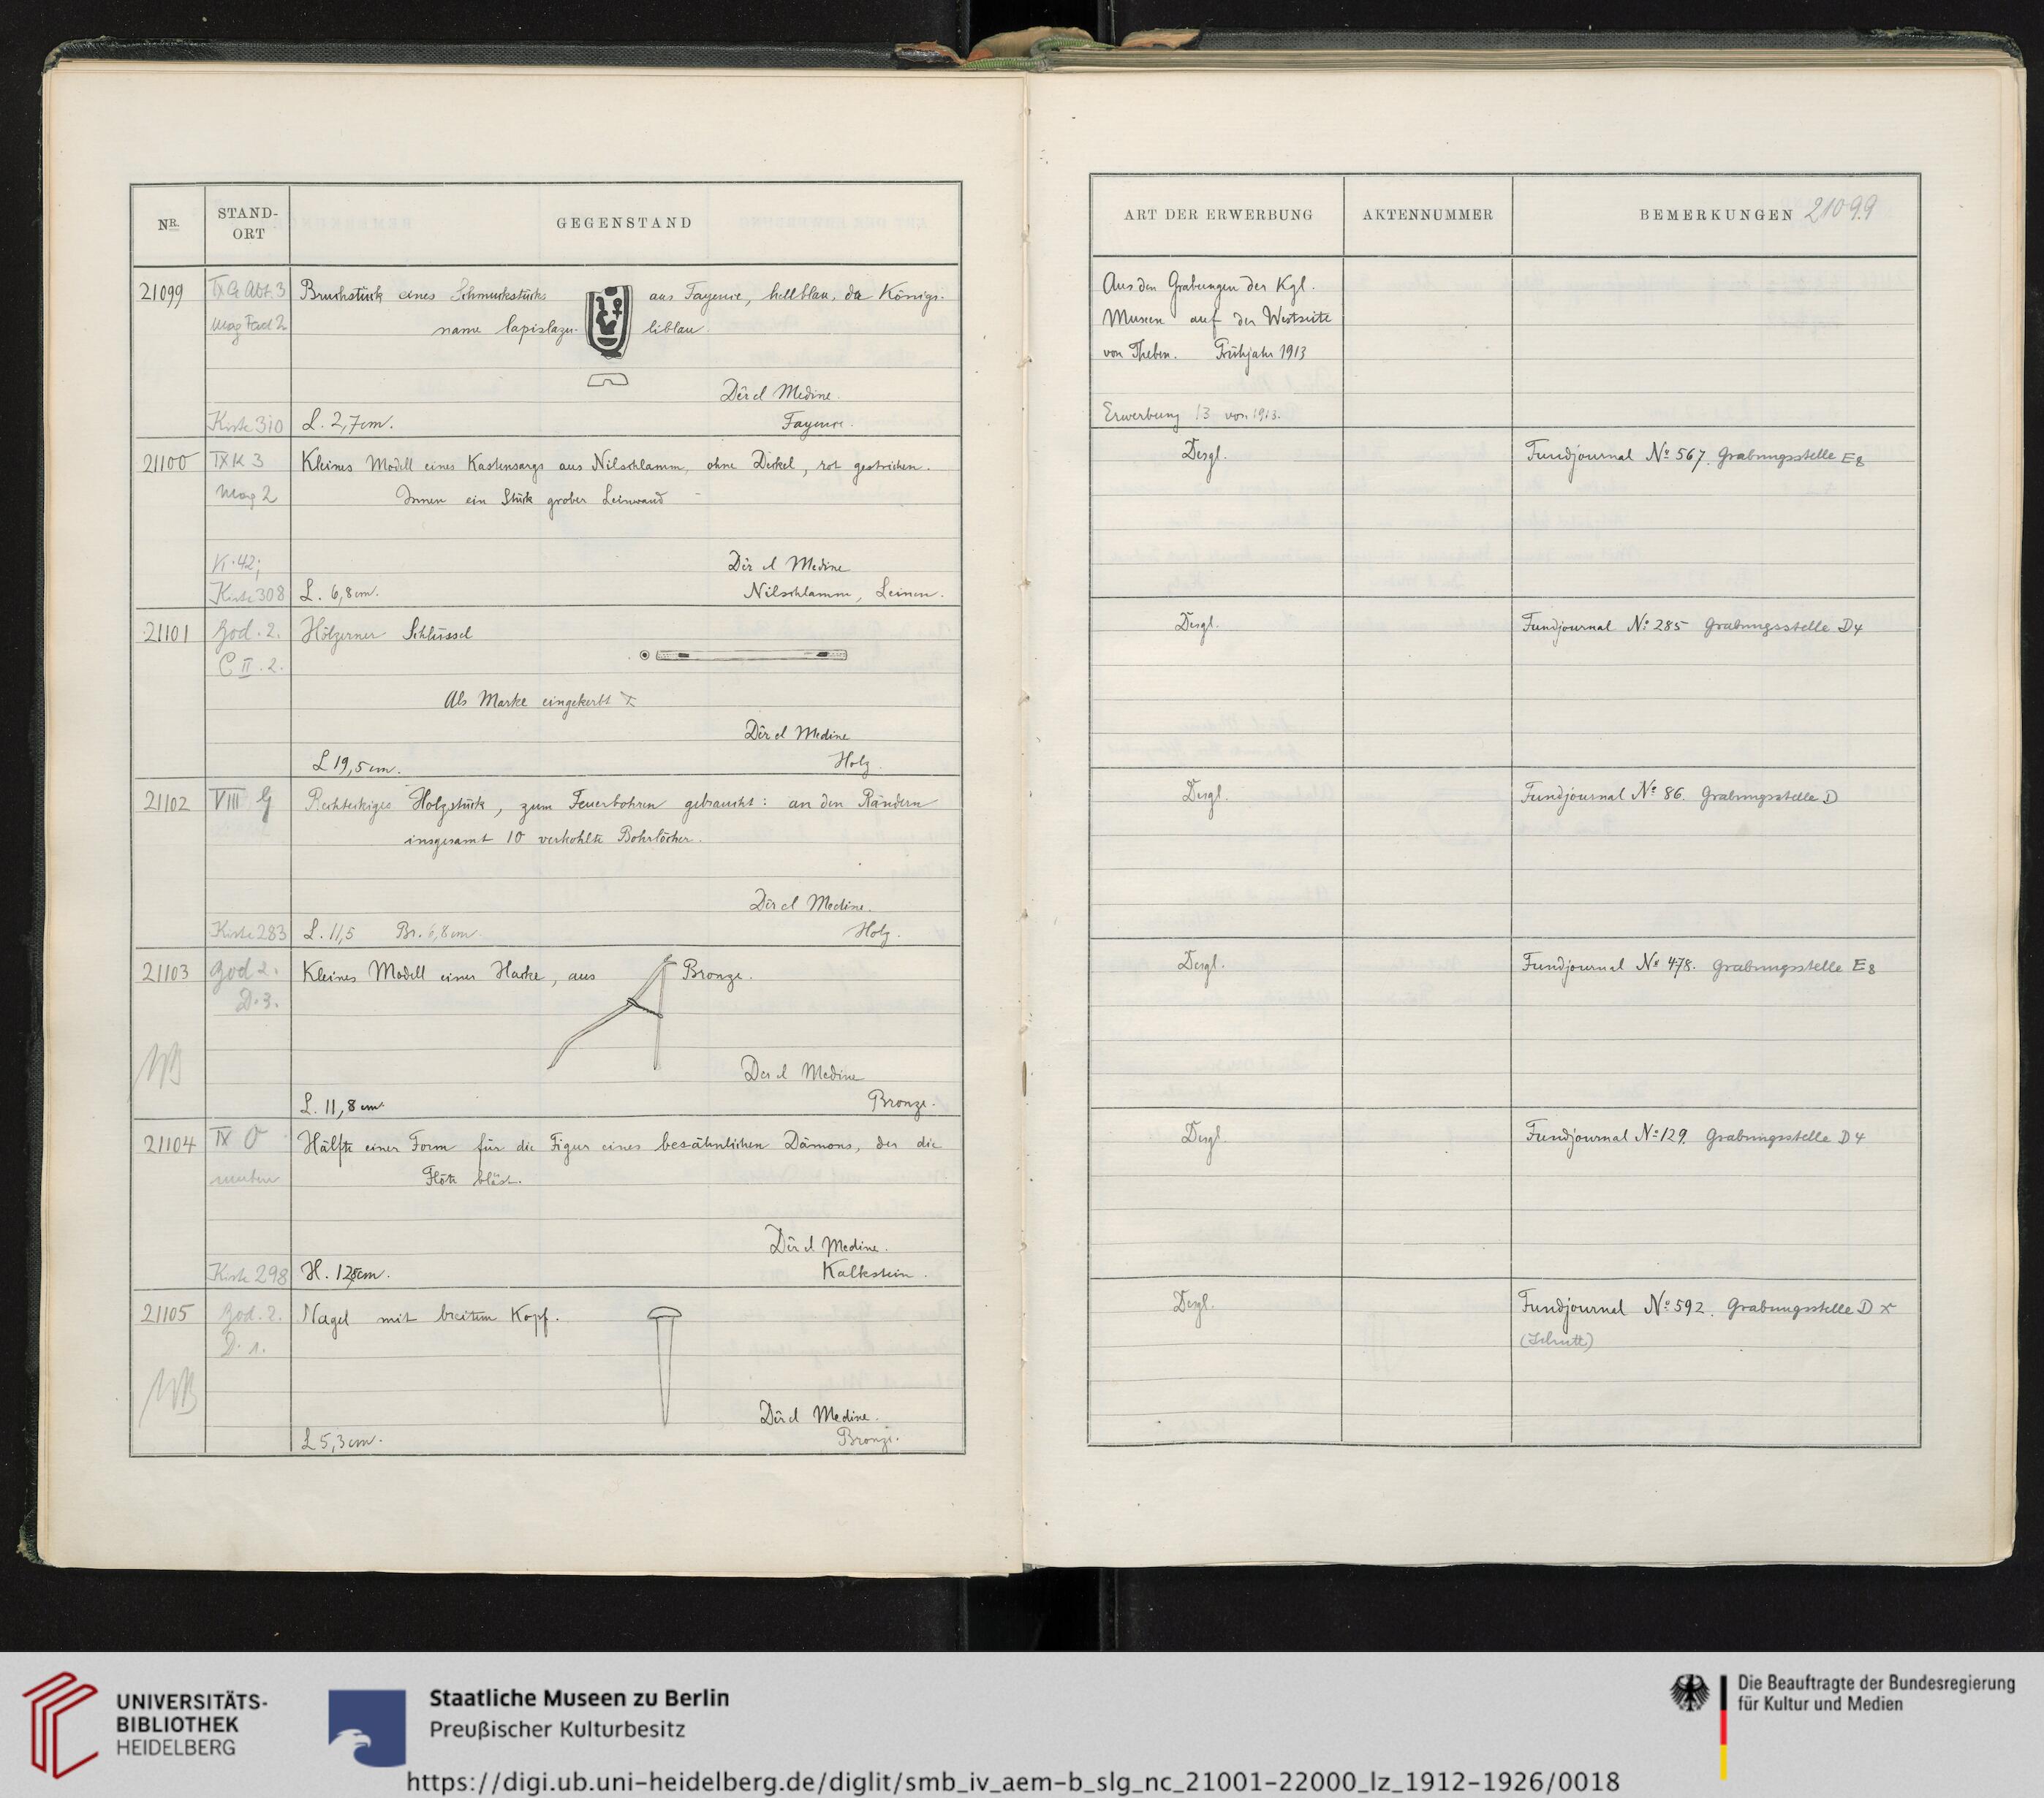 NR.
STAND-
ORT
GEGENSTAND
21099
IX G Abt. 3
Bruchstück eines Schmuckstücks aus Fayence, hellblau, der Königs-
Mag Fach 2
name lapislazu- liblau.
Dêr el Medine.
Kiste 310
L. 2,7 cm.
Fayence.
21100
IX K 3
Kleines Modell eines Kastensargs aus Nilschlamm, ohne Deckel, rot gestrichen.
Mag 2
Innen ein Stück grober Leinwand
K. 42;
Dêr el Medine
Kiste 308
L. 6,8 cm.
Nilschlamm, Leinen.
21101
God. 2.
Hölzerner Schlüssel
C II. 2.
Als Marke eingekerbt
Dêr el Medine
L 19,5 cm.
Holz.
21102
VIII G
Rechteckiges Holzstück, zum Feuerbohren gebraucht: an den Rändern
insgesamt 10 verkohlte Bohrlöcher.
Dêr el Medine.
Kiste 283
L. 11,5 Br. 6,8 cm.
Holz.
21103
God 2.
Kleines Modell einer Hacke, aus Bronze.
D. 3.
Der el Medine
L. 11,8 cm
Bronze.
21104
IX O
Hälfte einer Form für die Figur eines besähnlichen Dämons, der die
Flöte bläst.
Dêr el Medine.
Kiste 298
H. 12,5 cm.
Kalkstein.
21105
God. 2.
Nagel mit breitem Kopf.
D. 1.
Dêr el Medine.
L 5,3 cm.
Bronze.
ART DER ERWERBUNG
AKTENNUMMER
BEMERKUNGEN
21099
Aus den Grabungen der Kgl.
Museen auf der Westseite
von Theben. Frühjahr 1913
Erwerbung 13 von 1913.
Desgl.
Fundjournal No 567. Grabungsstelle E8
Desgl.
Fundjournal No 285 Grabungsstelle D4
Desgl.
Fundjournal No 86. Grabungsstelle D
Desgl.
Fundjournal No 478. Grabungsstelle E8
Desgl
Fundjournal No 129. Grabungsstelle D4
Desgl.
Fundjournal No 592. Grabungsstelle D x
(Schutt)
UNIVERSITÄTS-
BIBLIOTHEK
HEIDELBERG
Staatliche Museen zu Berlin
Preußischer Kulturbesitz
Die Beauftragte der Bundesregierung
für Kultur und Medien
https://digi.ub.uni-heidelberg.de/diglit/smb_iv_aem-b_slg_nc_21001-22000_lz_1912-1926/0018